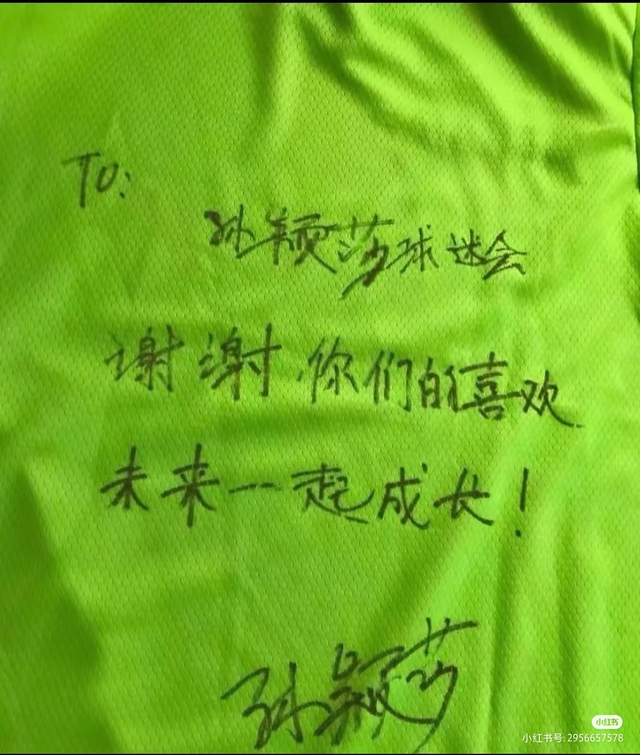 TO:
孙颖莎球迷会
谢谢你们的喜欢
未来一起成长!
孙颖莎
小红书
小红书号:2956657578